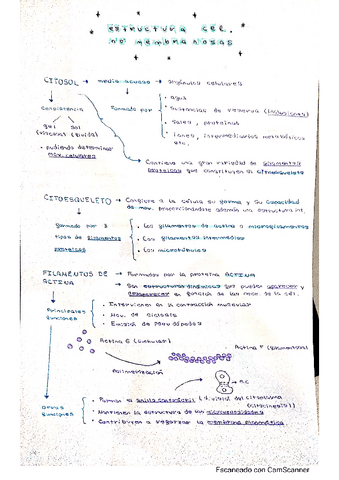 estructura cel.
no membranosas
CITOSOL → medio acuoso → orgánulos celulares
consistencia
gel sol
(viscosa) (fluida)
• pudiendo determinar
mov. celulares
formado por
• agua
• Sustancias de reserva (inclusiones)
• Sales, proteínas
• iones, intermediarios metabólicos
etc.
Contiene una gran variedad de filamentos
proteicos que constituyen el citoesqueleto
CITOESQUELETO → Confiere a la célula su forma y su capacidad
de mov. proporcionándole además una estructura int.
formado por 3
tipos de filamentos
proteicos
• Los filamentos de actina o microfilamentos
• Los filamentos intermedios
• Los microtúbulos
FILAMENTOS DE
ACTINA
→ Formados por la proteína ACTINA
→ Son estructuras dinámicas que pueden aparecer y
desaparecer en función de los mov. de la cél.
Principales
funciones
• Intervienen en la contracción muscular
• Mov. de ciclosis
• Emisión de pseudópodos
Actina G (globular)
Actina F (filamentosa)
Polimerización
A.C
Otras
funciones
• Forman el anillo contráctil (división del citoplasma
(citocinesis)
• Mantienen la estructura de las microvellosidades
• Contribuyen a reforzar la membrana plasmática
Escaneado con CamScanner